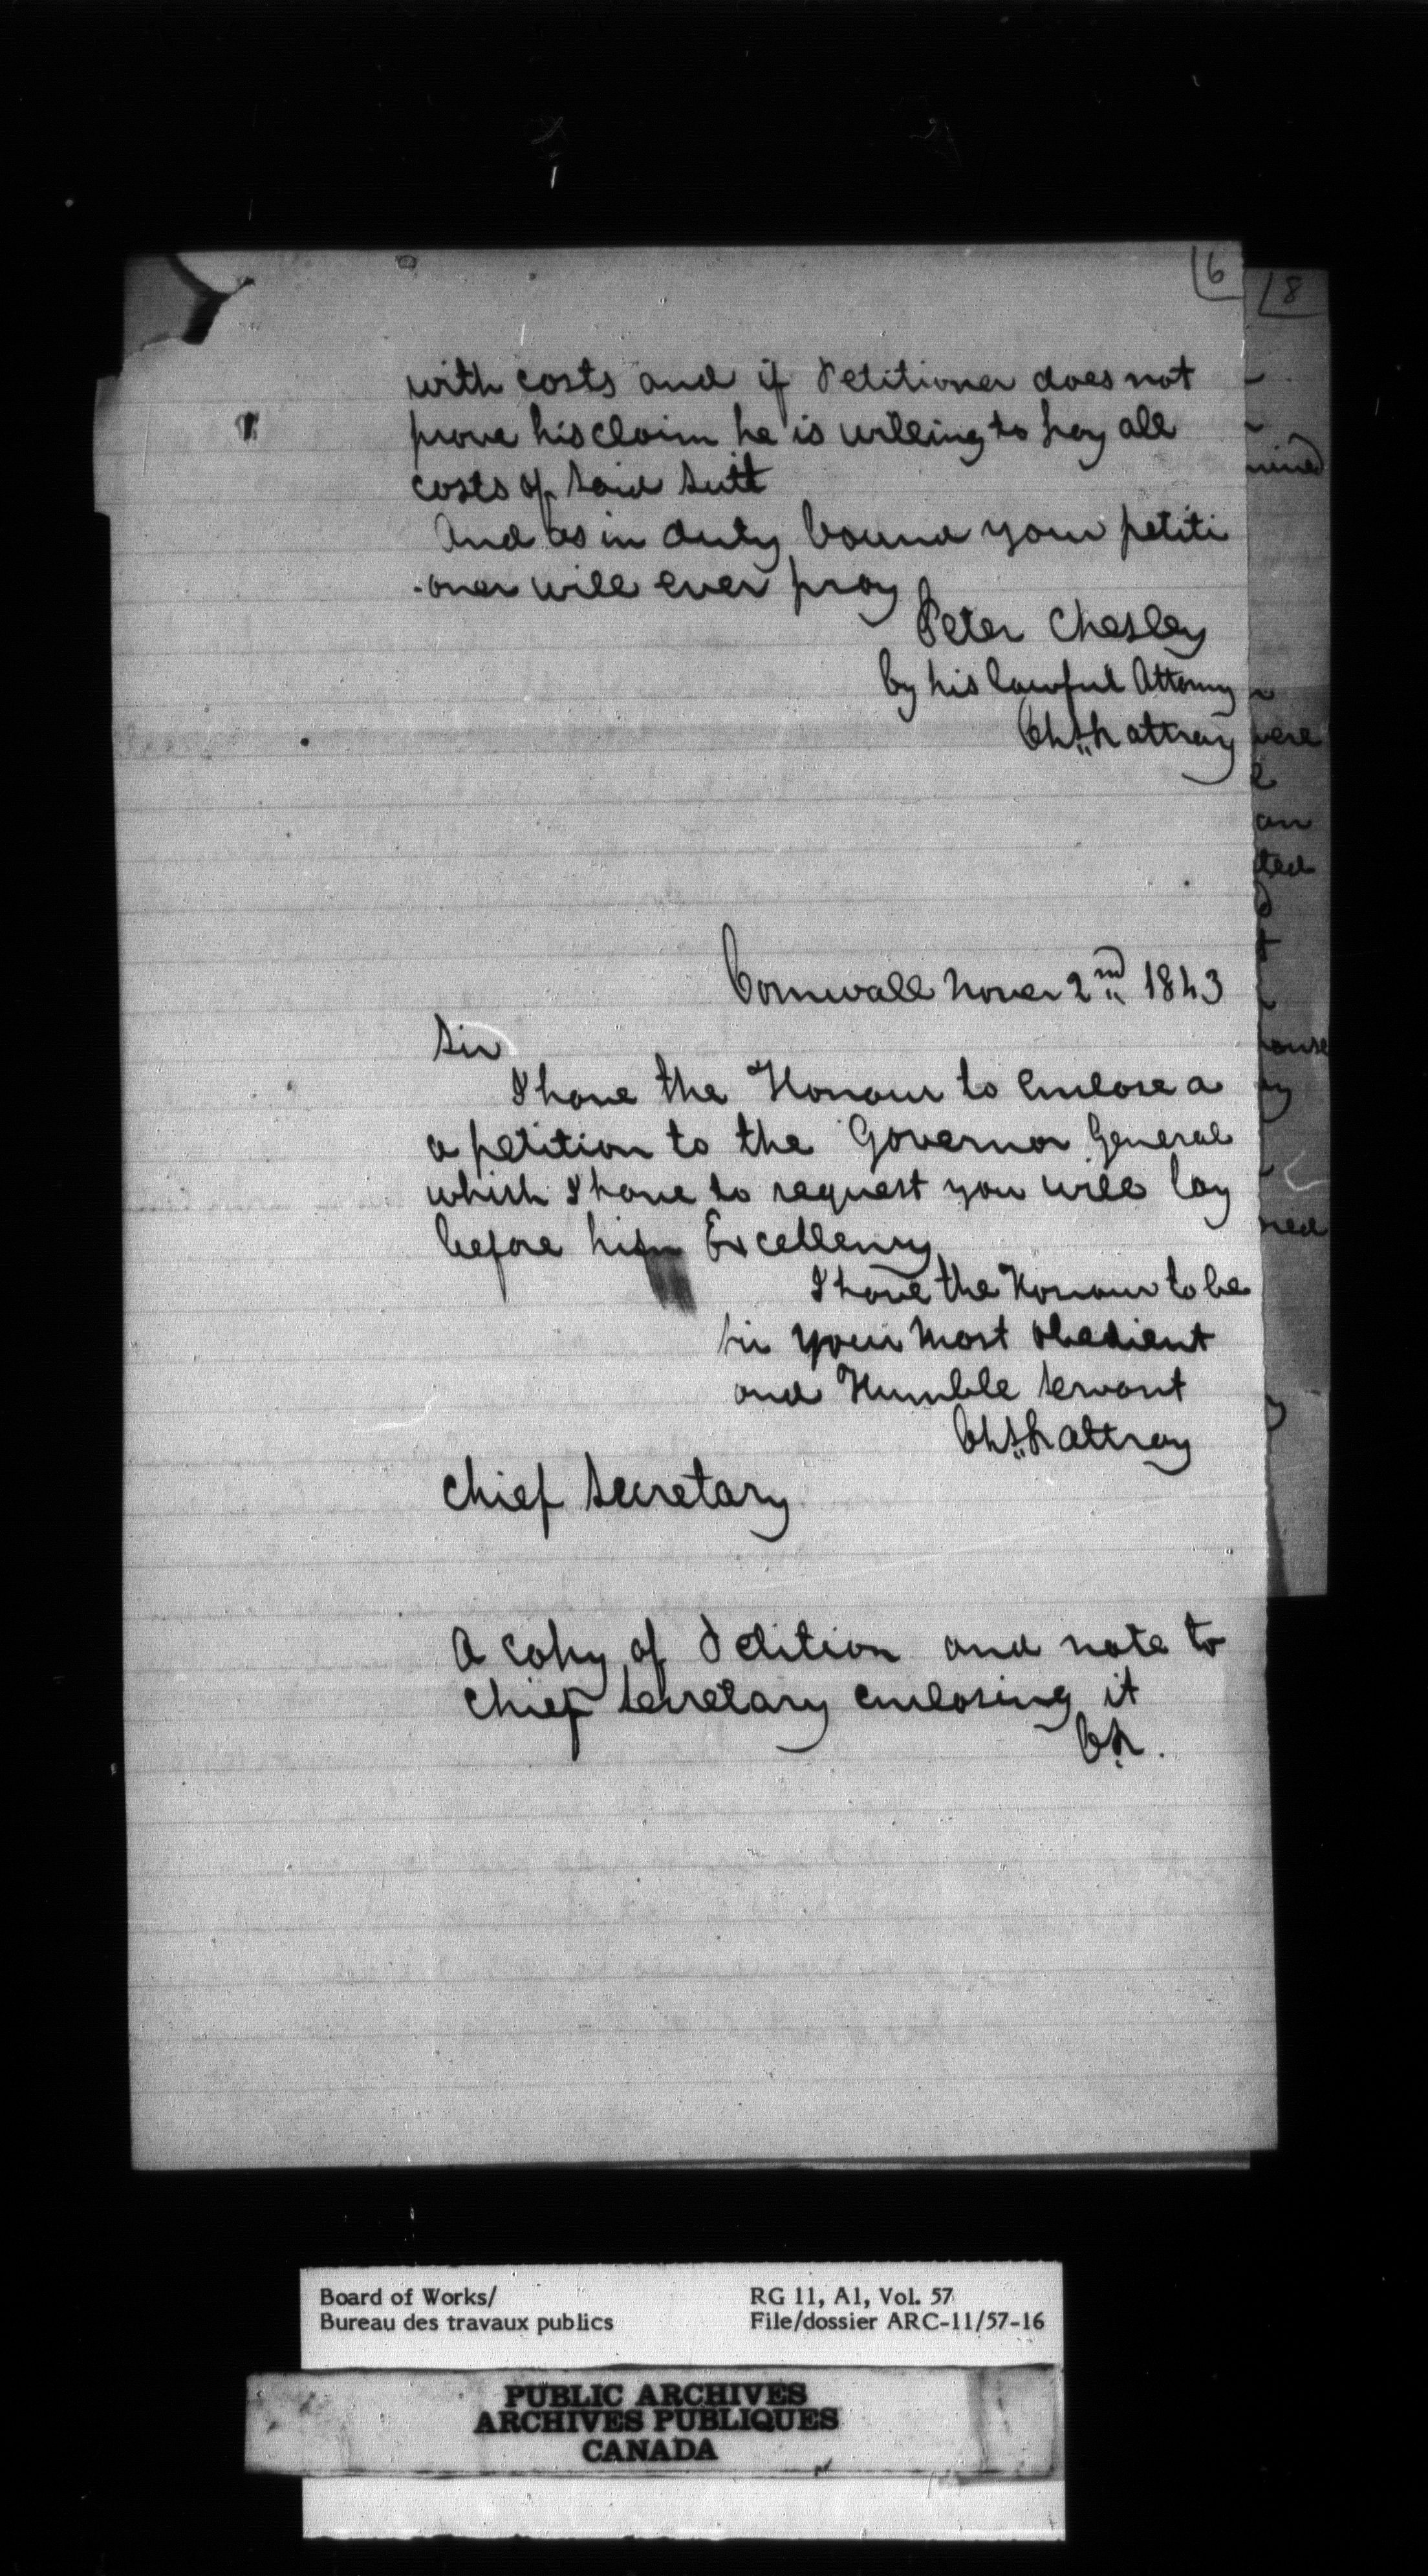 6
8
with costs and if Petitioner does not
prove his claim he is willing to pay all
costs of said suit
And as in duty bound your petiti
-oner will ever pray
Peter Chesley
by his lawful Attorny
Chs Rattray
Cornwall Nover 2nd 1843
Sir
I have the Honour to Enclose a
a petition to the Governor General
which I have to request you will lay
before his Excellency
I have the Honour to be
Sir your Most Obedient
and Humble Servant
Chs Rattray
Chief Secretary
A copy of Petition and note to
Chief Secretary enclosing it
CR.
Board of Works/
Bureau des travaux publics
RG 11, A1, Vol. 57
File/dossier ARC-11/57-16
PUBLIC ARCHIVES
ARCHIVES PUBLIQUES
CANADA